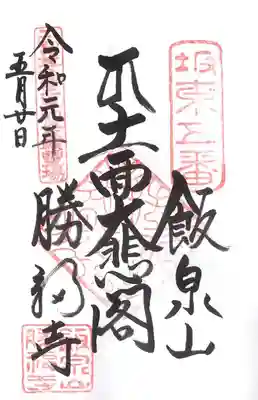 坂東五番
飯泉山
大悲閣
勝福寺
令和元年
五月廿日